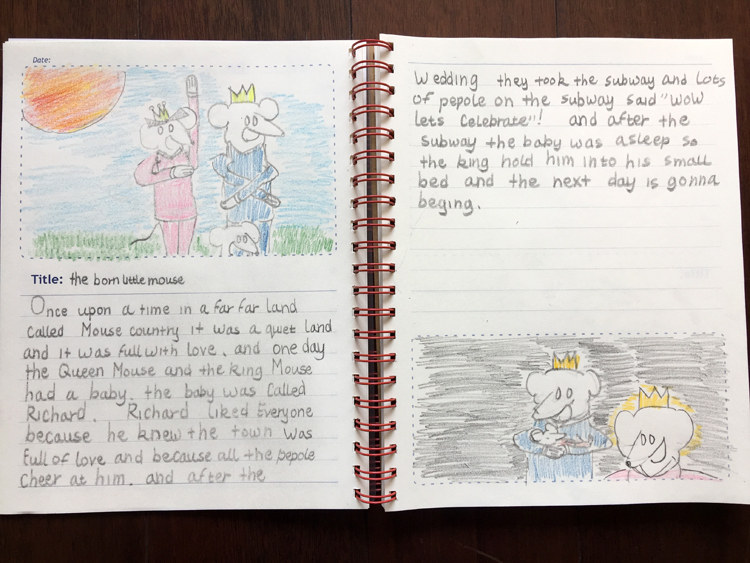 Date:
Title: the born little mouse
Once upon a time in a far far land
Called Mouse country it was a quiet land
and it was full with love. and one day
the Queen Mouse and the king Mouse
had a baby. the baby was Called
Richard. Richard liked Everyone
because he knew the town was
full of love and because all the pepole
Cheer at him. and after the
Wedding they took the subway and Lots
of pepole on the subway said "WOW
lets Celebrate"! and after the
subway the baby was asleep so
the king hold him into his small
bed and the next day is gonna
beging.